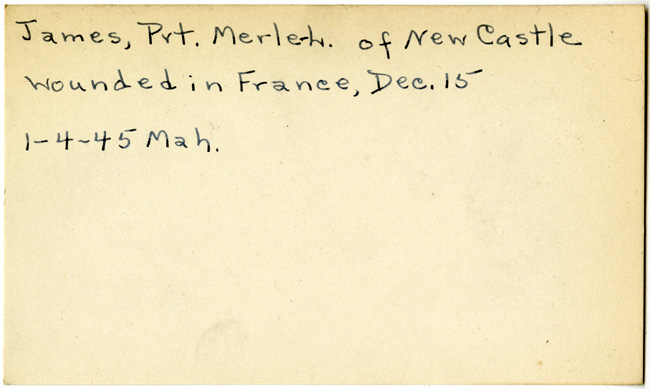 James, Pvt. Merle L. of New Castle
Wounded in France, Dec. 15
1-4-45 Mah.